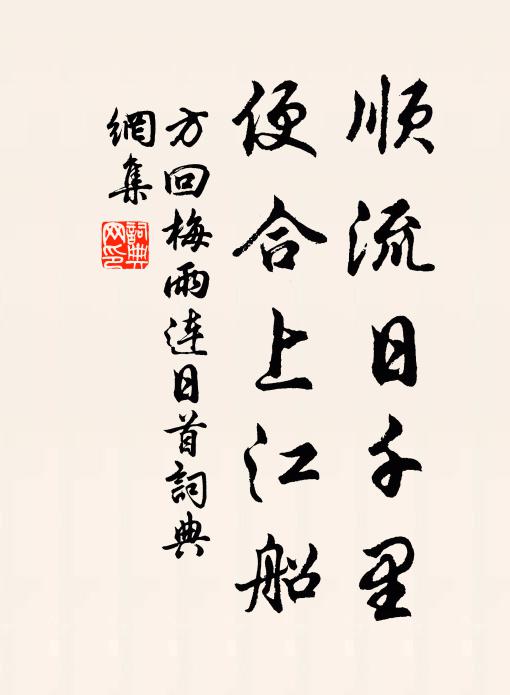 順流日千里
便合上江船
方回梅雨連日首詞典
網集
詞典
网印